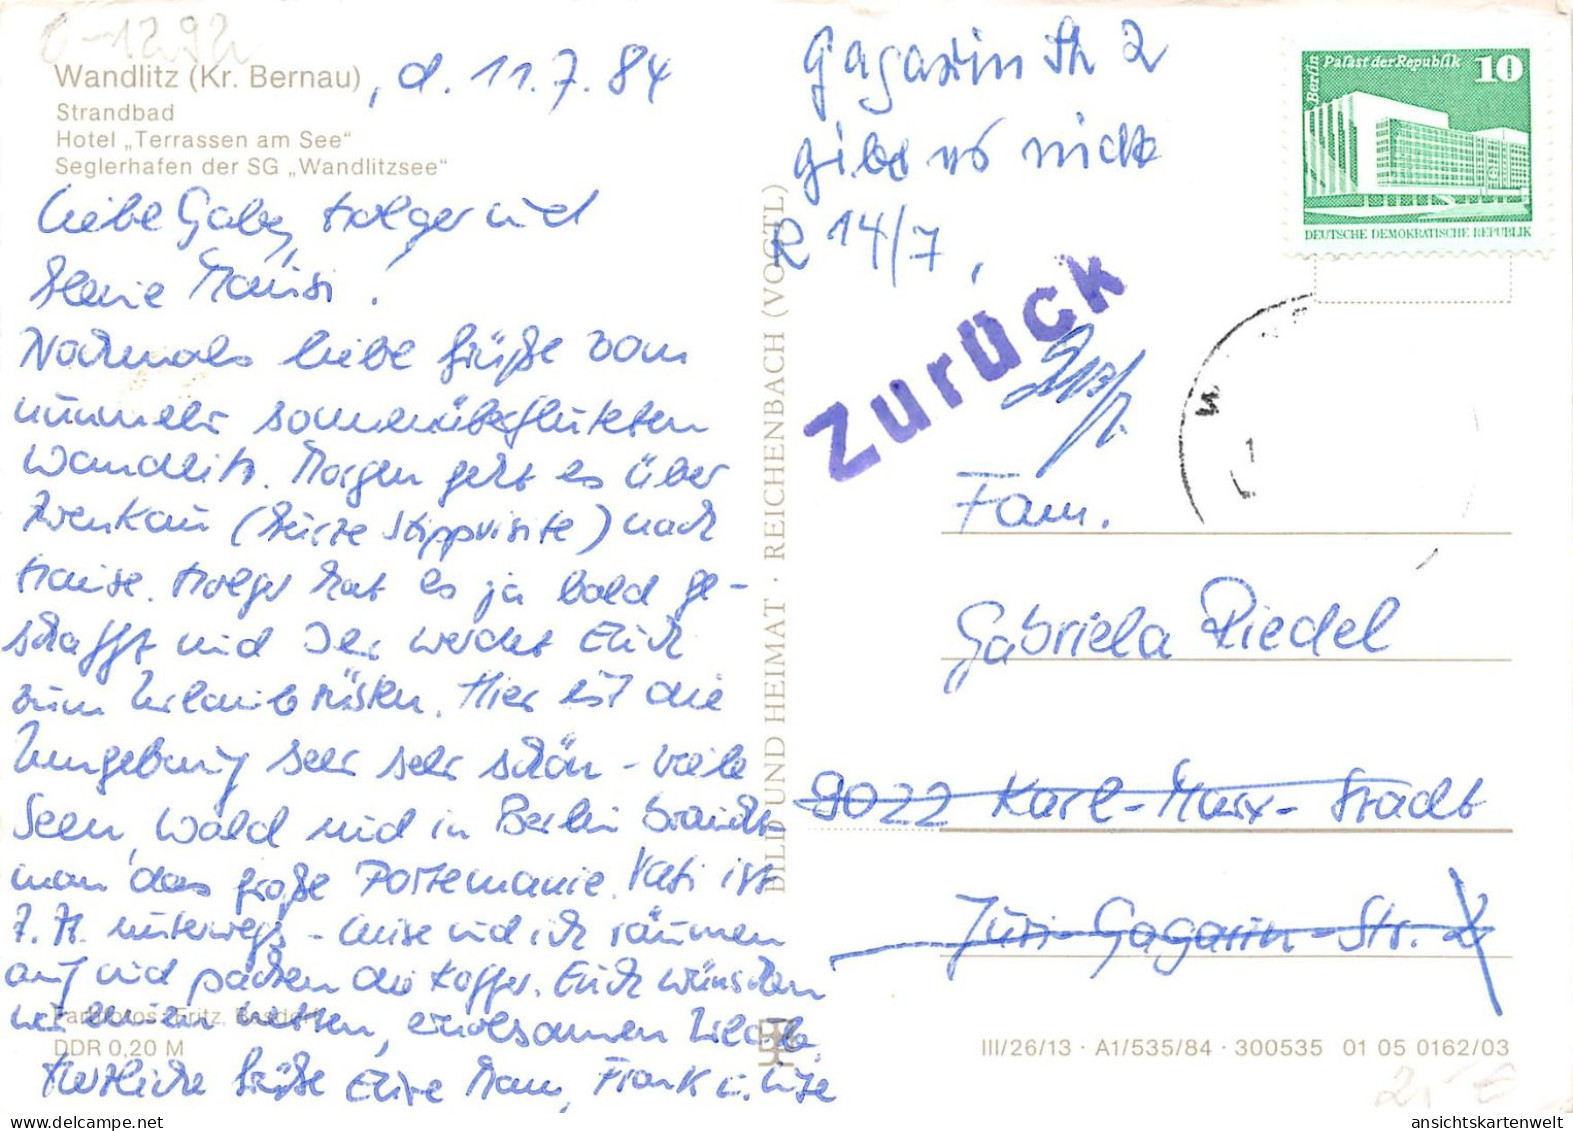 Wandlitz (Kr. Bernau), d. 11.7.84
Strandbad
Hotel „Terrassen am See“
Seglerhafen der SG „Wandlitzsee“
Liebe Gaby, Holger und
kleine Mausi!
Nochmals liebe Grüße vom
nunmehr sonnenüberfluteten
Wandlitz. Morgen geht es über
Zwenkau (kurze Stippvisite) nach
Hause. Holger hat es ja bald ge-
schafft und Ihr werdet Euch
zum Urlaub rüsten. Hier ist die
Umgebung sehr sehr schön - viele
Seen, Wald und in Berlin braucht
man das große Portemonnaie. Kati ist
z. Zt. unterwegs - Luise und ich räumen
auf und packen die Koffer. Euch wünschen
wir einen netten, erholsamen Urlaub.
Herzliche Grüße Eure Mam, Frank u. Luise
Farbfotos: Fritz, Basdorf
DDR 0,20 M
BILD UND HEIMAT · REICHENBACH (VOGTL)
Gagarin Str 2
gibt es nicht
R 14/7,
Zurück
Berlin Palast der Republik 10
DEUTSCHE DEMOKRATISCHE REPUBLIK
Fam.
Gabriela Riedel
9022 Karl-Marx-Stadt
Juri-Gagarin-Str. 2
III/26/13 · A1/535/84 · 300535 01 05 0162/03
2,- €
ansichtskartenwelt